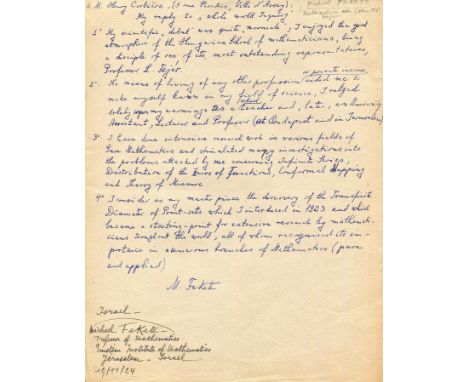 à M. Henry Corbière, (3 rue Pradier, Ville d'Avray),
My reply to a whole world Inquiry
1° My scientific "debut" was quite "normale", I enjoyed the good
atmosphere of the Hungarian School of mathematicians, being
a disciple of one its most outstanding representatives,
Professor L. Fejér.
2° No means of living of any other profession or private income,
make myself known in my field of science, I relyed
solely upon my earnings as a school teacher and, later, as University
Assistant, Lecturer and Professor (at Budapest and in Jerusalem)
3° I have done intensive research work in various fields of
Pure Mathematics and stimulated many investigations into
the problems attacked by me concerning Infinite Series,
Distribution of the Zeros of Functions, Conformal Mapping
and Theory of Measure
4° I consider as my master piece the discovery of the Transfinite
Diameter of Point-sets which I introduced in 1923 and which
became a starting-point for extensive research by mathema-
ticians throughout the world, all of whom recognised its im-
portance in numerous branches of Mathematics (pure
and applied)
M. Fekete
Israel —
Michael Fekete —
Professor of Mathematics
Einstein Institute of Mathematics
Jerusalem — Israel
12/11/54